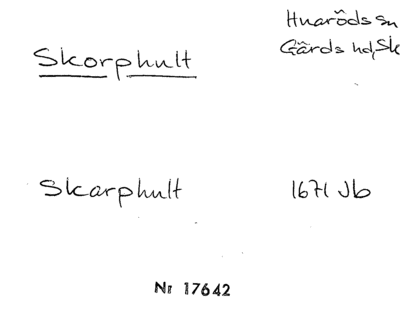 Huarôds sn
Skorphult
Gärds hd, Sk
Skarphult
1671 Jb
Nr 17642